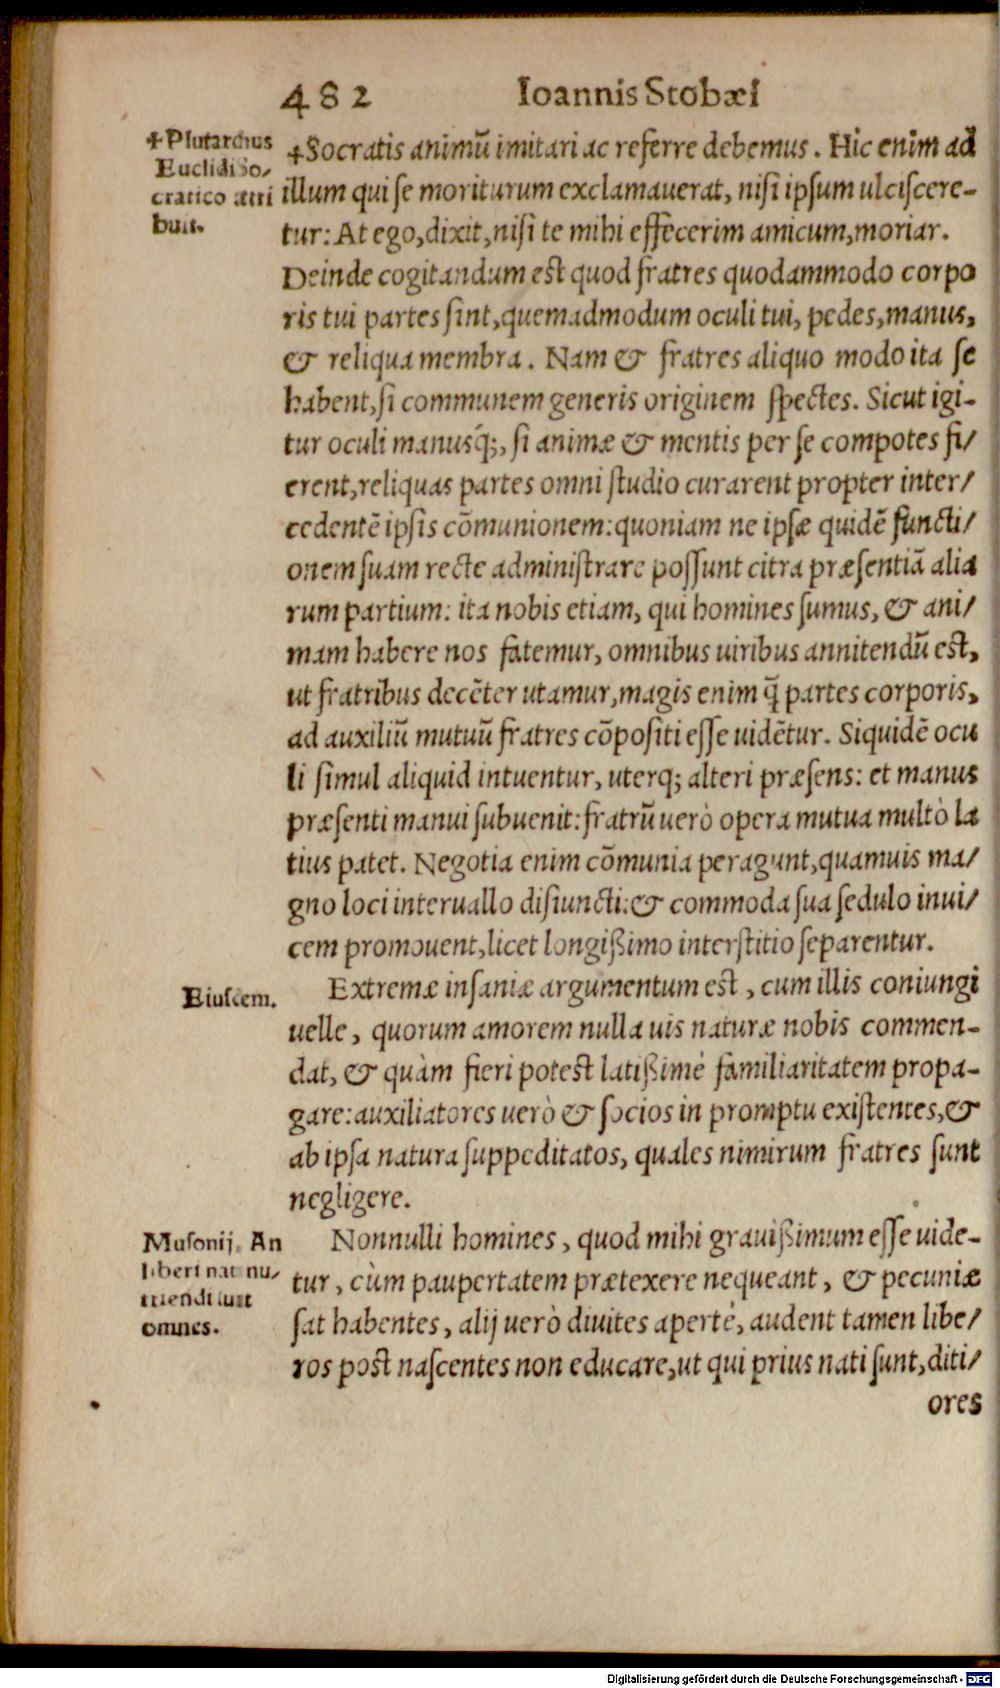 482 Ioannis Stobæi
✢Plutarchus
Euclidi So/
cratico attri
buit.
✢Socratis animũ imitari ac referre debemus. Hic enim ad
illum qui se moriturum exclamauerat, nisi ipsum ulciscere-
tur: At ego, dixit, nisi te mihi effecerim amicum, moriar.
Deinde cogitandum est quod fratres quodammodo corpo
ris tui partes sint, quemadmodum oculi tui, pedes, manus,
& reliqua membra. Nam & fratres aliquo modo ita se
habent, si communem generis originem spectes. Sicut igi-
tur oculi manusq́;, si animæ & mentis per se compotes fi/
erent, reliquas partes omni studio curarent propter inter/
cedentē ipsis cōmunionem: quoniam ne ipsæ quidē functi/
onem suam recte administrare possunt citra præsentiā alia
rum partium: ita nobis etiam, qui homines sumus, & ani/
mam habere nos fatemur, omnibus uiribus annitendũ est,
ut fratribus decēter utamur, magis enim q̃ partes corporis,
ad auxiliũ mutuũ fratres cōpositi esse uidētur. Siquidē ocu
li simul aliquid intuentur, uterq; alteri præsens: et manus
præsenti manui subuenit: fratrũ uerò opera mutua multò la
tius patet. Negotia enim cōmunia peragunt, quamuis ma/
gno loci interuallo disiuncti: & commoda sua sedulo inui/
cem promouent, licet longißimo interstitio separentur.
Eiusdem.
Extremæ insaniæ argumentum est, cum illis coniungi
uelle, quorum amorem nulla uis naturæ nobis commen-
dat, & quàm fieri potest latißimè familiaritatem propa-
gare: auxiliatores uerò & socios in promptu existentes, &
ab ipsa natura suppeditatos, quales nimirum fratres sunt
negligere.
Musonij. An
liberi nati nu/
triendi sint
omnes.
Nonnulli homines, quod mihi grauißimum esse uide-
tur, cùm paupertatem prætexere nequeant, & pecuniæ
sat habentes, alij uerò diuites apertè, audent tamen libe/
ros post nascentes non educare, ut qui prius nati sunt, diti/
ores
Digitalisierung gefördert durch die Deutsche Forschungsgemeinschaft - DFG